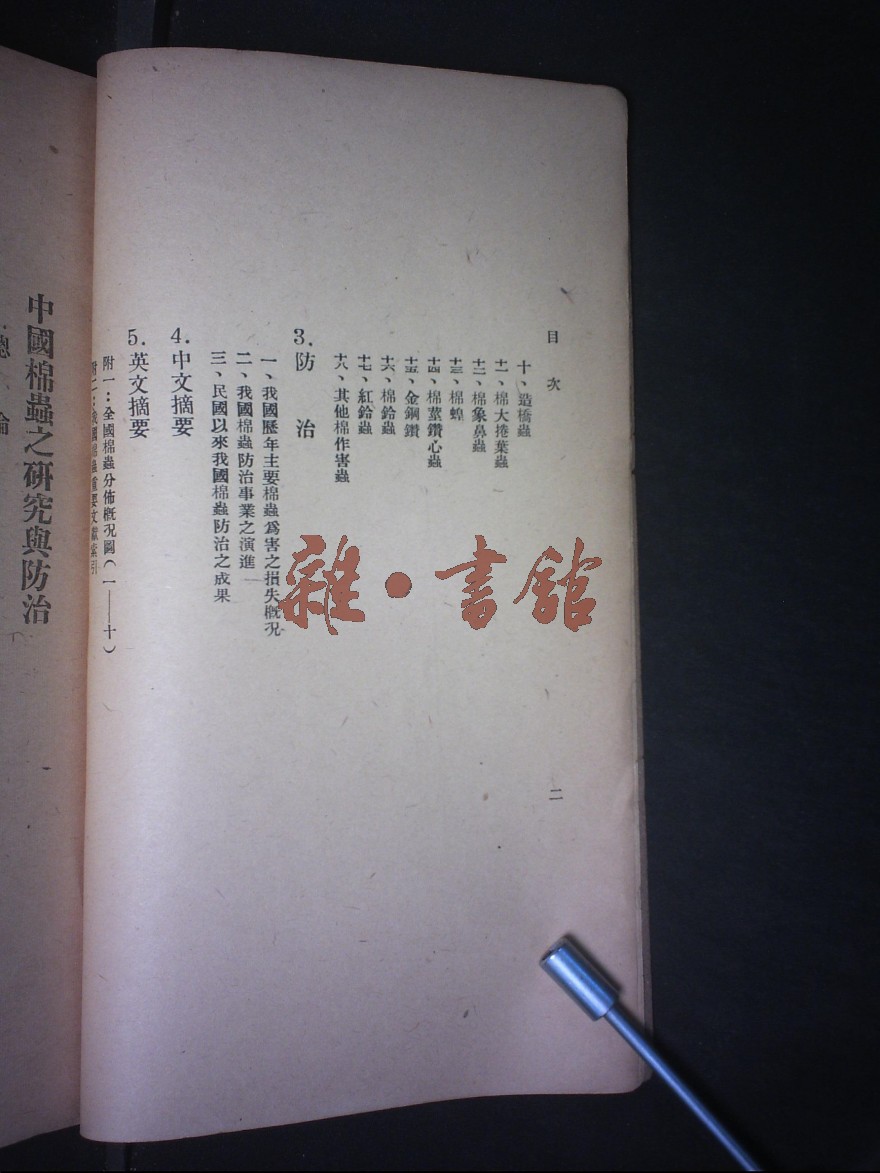 目次
二
十、造橋蟲
十一、棉大捲葉蟲
十二、棉象鼻蟲
十三、棉蝗
十四、棉莖鑽心蟲
十五、金鋼鑽
十六、棉鈴蟲
十七、紅鈴蟲
十八、其他棉作害蟲
3. 防治
一、我國歷年主要棉蟲爲害之損失概况
二、我國棉蟲防治事業之演進
三、民國以來我國棉蟲防治之成果
4. 中文摘要
5. 英文摘要
附一：全國棉蟲分佈概况圖（一——十）
附二：我國棉蟲重要文獻索引
中國棉蟲之研究與防治
總論
雜·書館